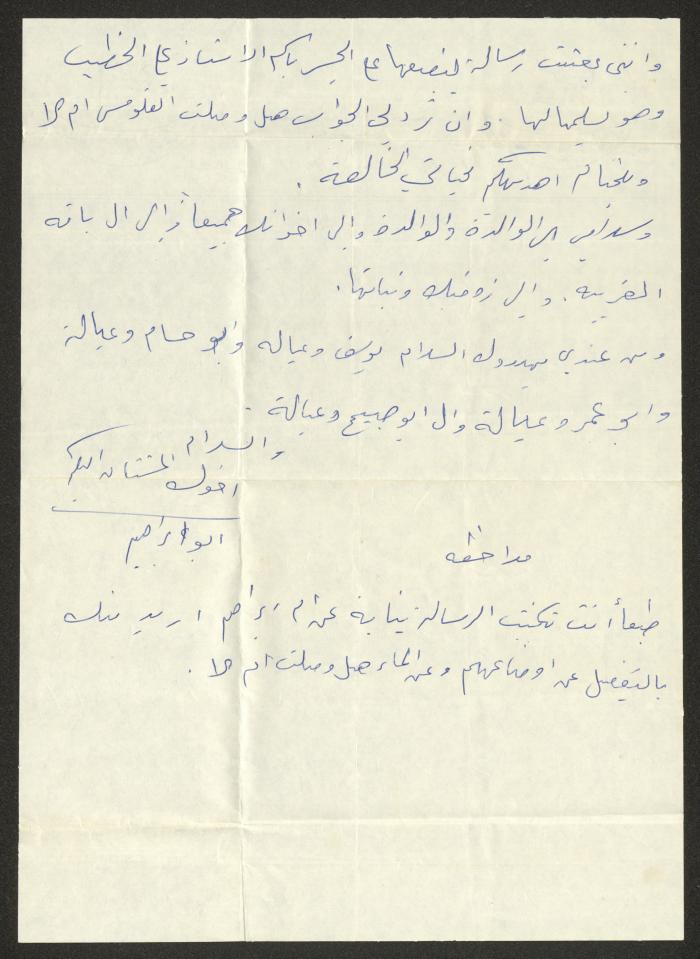 وانني بعثت رسالة ليضعها على الجسر باكم الاستاذ علي الخطيب
وهو يسلمها لها. وان ترد لي الجواب هل وصلت الفلوس ام لا
وبالختام اهديكم تحياتي الخالصة.
وسلامي الى الوالدة والوالدة والى اخوانك جميعاً والى ال باقه
الغربيه. والى زوجتك وبناتها.
ومن عندي يهدوك السلام يوسف وعياله وابو حسام وعيالة
وابو عمر وعيالة وال ابو صبيح وعيالة.
والسلام
اخوك المشتاق اليكم
ابو ابراهيم
ملاحظه
طبعاً انت تكتب الرسالة نيابة عن ام ابراهيم اريد منك
بالتفصيل عن اوضاعهم وعن الماء هل وصلت ام لا.